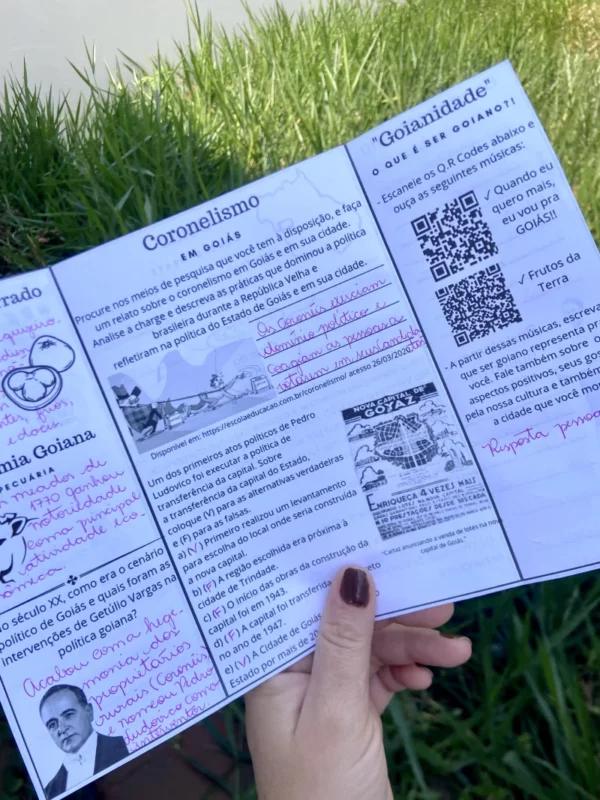 rrado
mia Goiana
PECUÁRIA
meados de
1770 ganhou
notoriedade
como principal
atividade eco-
nômica.
o século XX, como era o cenário
político de Goiás e quais foram as
intervenções de Getúlio Vargas na
política goiana?
Acabou com a hege-
monia dos
proprietários
rurais (Coronéis)
e nomeou Pedro
Ludovico como
interventor
Coronelismo
EM GOIÁS
Procure nos meios de pesquisa que você tem à disposição, e faça
um relato sobre o coronelismo em Goiás e em sua cidade.
Analise a charge e descreva as práticas que dominou a política
brasileira durante a República Velha e
refletiram na política do Estado de Goiás e em sua cidade.
Os Coronéis exerciam
domínio político e
coagiam as pessoas a
votarem em
Disponível em: https://escolaeducacao.com.br/coronelismo/ acesso 26/03/2020
Um dos primeiros atos políticos de Pedro
Ludovico foi executar a política de
transferência da capital. Sobre
a transferência da capital do Estado,
coloque (V) para as alternativas verdadeiras
e (F) para as falsas.
a) (V) Primeiro realizou um levantamento
para escolha do local onde seria construída
a nova capital.
b) (F) A região escolhida era próxima à
cidade de Trindade.
c) (F) O início das obras da construção da
capital foi em 1943.
d) (F) A capital foi transferida
no ano de 1947.
e) (V) A Cidade de Goiás
Estado por mais de 20
NOVA CAPITAL DE
GOYAZ
ENRIQUEÇA 4 VEZES MAIS
"Cartaz anunciando a venda de lotes na nova
capital de Goiás."
"Goianidade"
O QUE É SER GOIANO?!
- Escaneie os Q.R Codes abaixo e
ouça as seguintes músicas:
✓ Quando eu
quero mais,
eu vou pra
GOIÁS!!
✓ Frutos da
Terra
- A partir dessas músicas, escreva
que ser goiano representa pr
você. Fale também sobre o
aspectos positivos, seus gos
pela nossa cultura e também
a cidade que você mo
Resposta pessoa